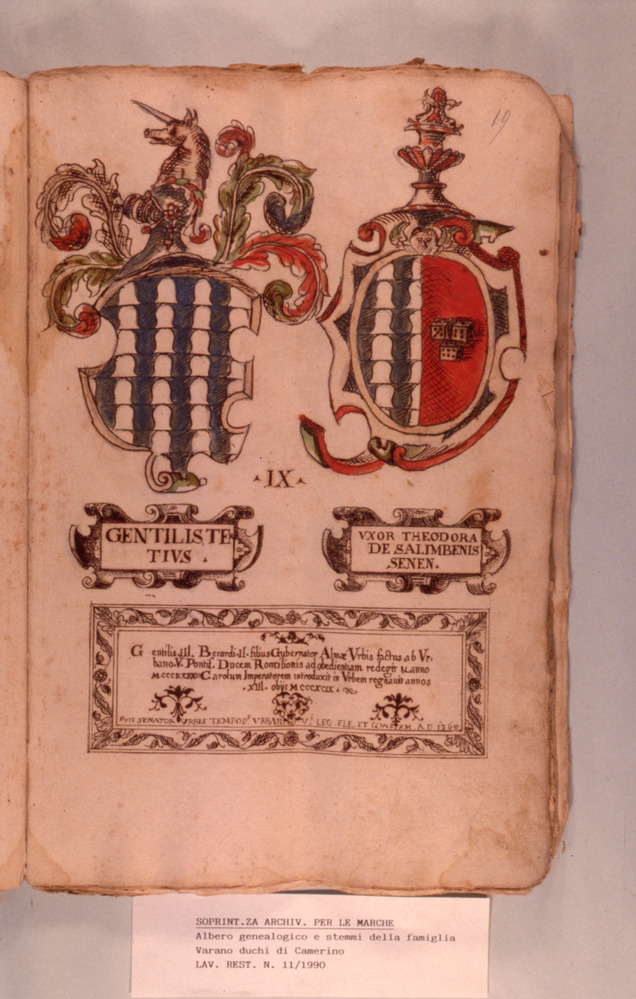 19
IX
GENTILIS TE
TIVS
VXOR THEODORA
DE SALIMBENIS
SENEN.
Gentilis III. Berardi II. filius Gubernator Almæ Vrbis factus ab Vr-
bano V. Pontif. Ducem Roncilionis ad obedientiam redegit &
Carolum Imperatorem introduxit in Vrbem regnauit annos
XIII obijt MCCCXCIX
FVIT SENATOR VRBIS TEMPOR VRBANI V LEG ELE ET A D 1368
SOPRINT.ZA ARCHIV. PER LE MARCHE
Albero genealogico e stemmi della famiglia
Varano duchi di Camerino
LAV. REST. N. 11/1990